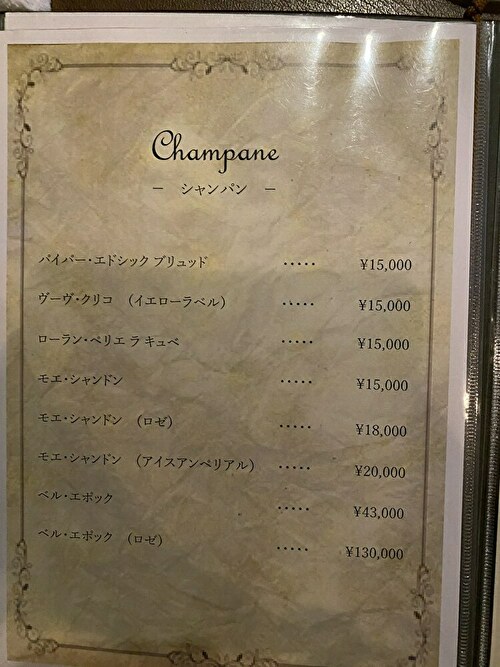 Champane
－ シャンパン －
パイパー・エドシック ブリュッド ..... ¥15,000
ヴーヴ・クリコ （イエローラベル） ..... ¥15,000
ローラン・ペリエ ラ キュベ ..... ¥15,000
モエ・シャンドン ..... ¥15,000
モエ・シャンドン （ロゼ） ..... ¥18,000
モエ・シャンドン （アイスアンペリアル） ..... ¥20,000
ベル・エポック ..... ¥43,000
ベル・エポック （ロゼ） ..... ¥130,000